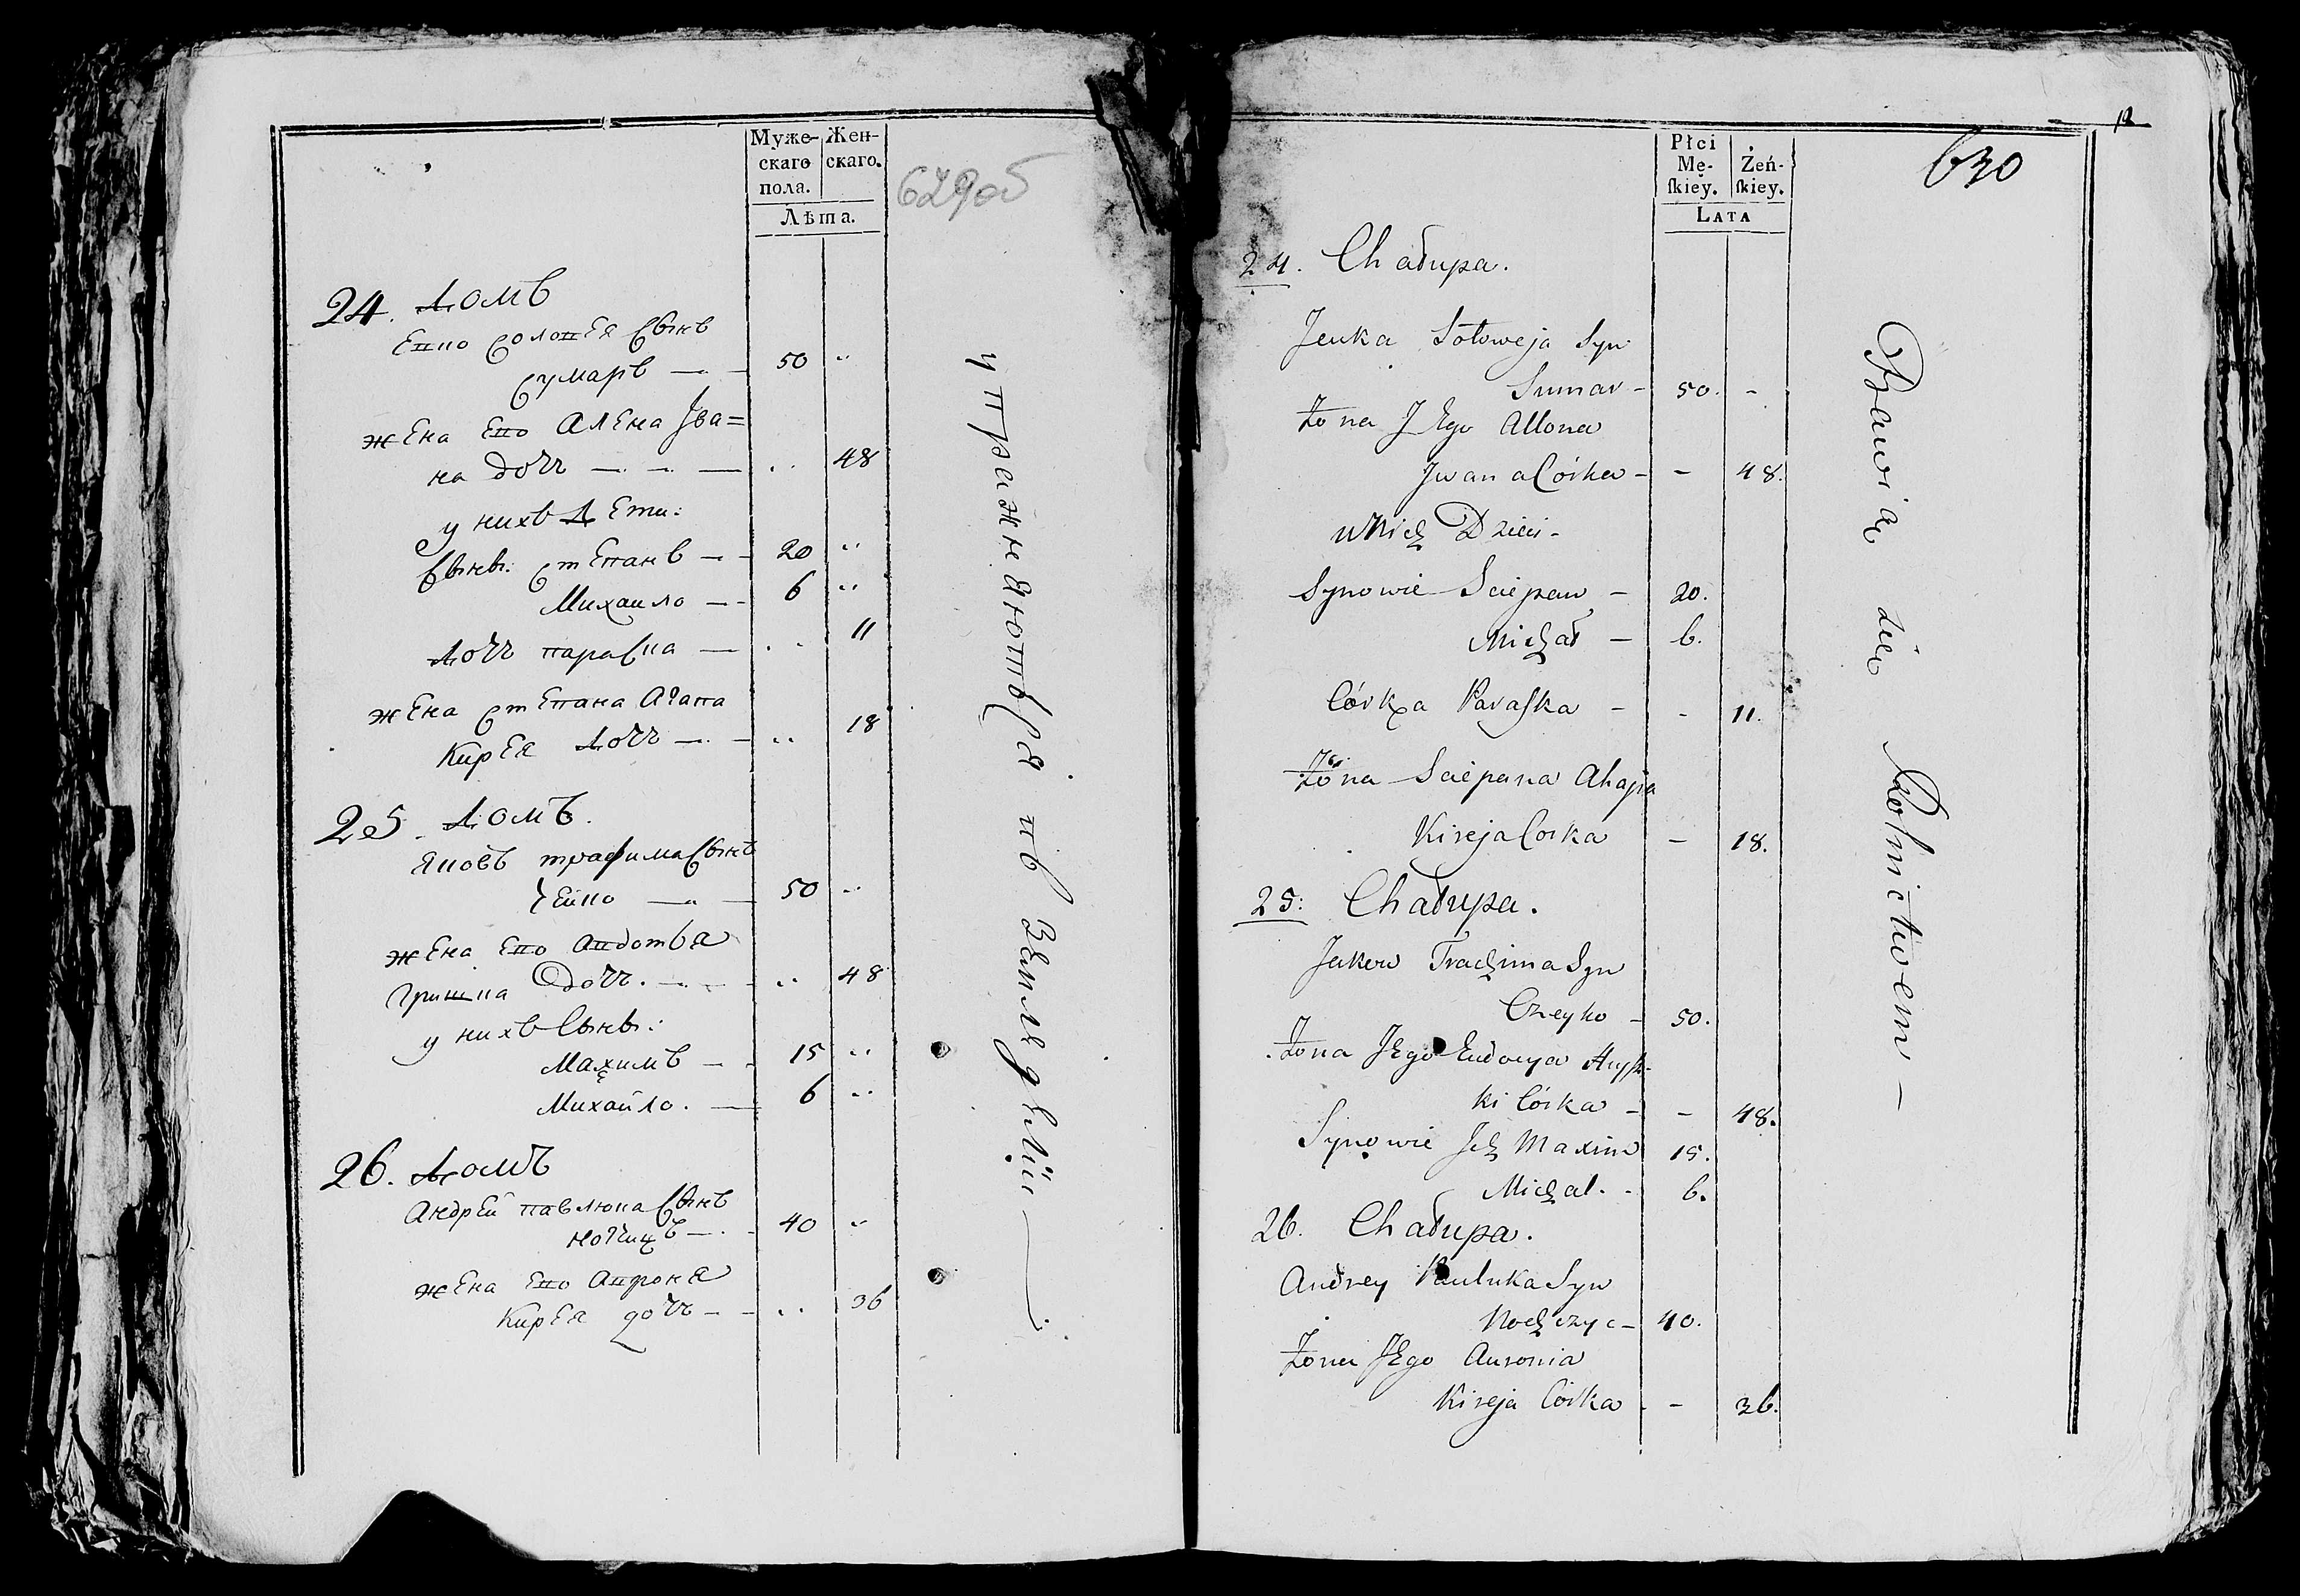 Муже-
скаго
пола.
Жен-
скаго.
Лѣта.
629об
24. Домъ
Епко Соловея Сынъ
Сумаръ — 50 "
жена Его Алена Ива=
на дочь — — " 48
у нихъ Дети:
Сыны: Степанъ — 20 "
Михаило — 6 "
Дочь параска — " 11
жена Степана Агапа
Кирея Дочь — " 18
25. Домъ.
Яковъ трафима Сынъ
Чейко — 50 "
жена Его Авдотья
Гришка дочь. — " 48
у нихъ Сыны:
Махимъ — 15 "
Михайло. — 6 "
26. Домъ
Андрей павлюка Сынъ
Нохчицъ — 40 "
жена Его Апроня
Кирея дочь — " 36
упражняютьСя въ Земледѣлїи
Płci
Mę-
ſkiey.
Żeń-
ſkiey.
LATA
630
18
24. Chałupa.
Jeuka Sołoweja Syn
Sumar – 50. –
Żona JEgo Allona
Jwana Córka – – 48.
u Nich Dzieci –
Synowie Sciepan – 20.
Michał – 6.
Córka Paraſka – – 11.
Żona Sciepana Ahapa
Kireja Corka – 18.
25: Chałupa.
Jakow Trachima Syn
Czeyko – 50.
Żona JEgo Eudocya Hryſz-
ki Córka – – 48.
Synowie Jch Maxim 15.
Michał. – 6.
26. Chałupa.
Andrey Pauluka Syn
Nochczyc – 40.
Żona JEgo Auronia
Kireja Córka – – 36.
Bawią się Rolnictwem –